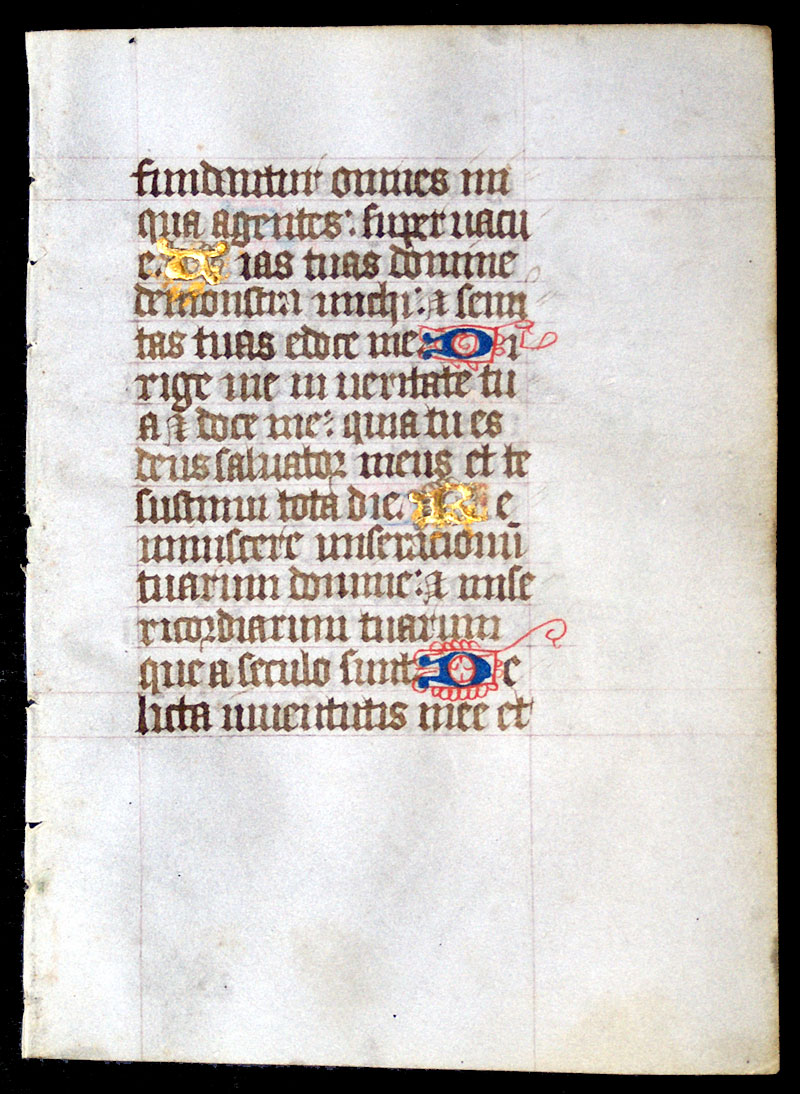 fundantur omnes ini
qua agentes: supervacu
e. Vias tuas domine
demonstra michi: et semi
tas tuas edoce me. Di
rige me in veritate tu
a et doce me: quia tu es
deus salvator meus et te
sustinui tota die. Re
miniscere miseracionū
tuarum domine: et mise
ricordiarum tuarum
que a seculo sunt. De
licta iuventutis mee et